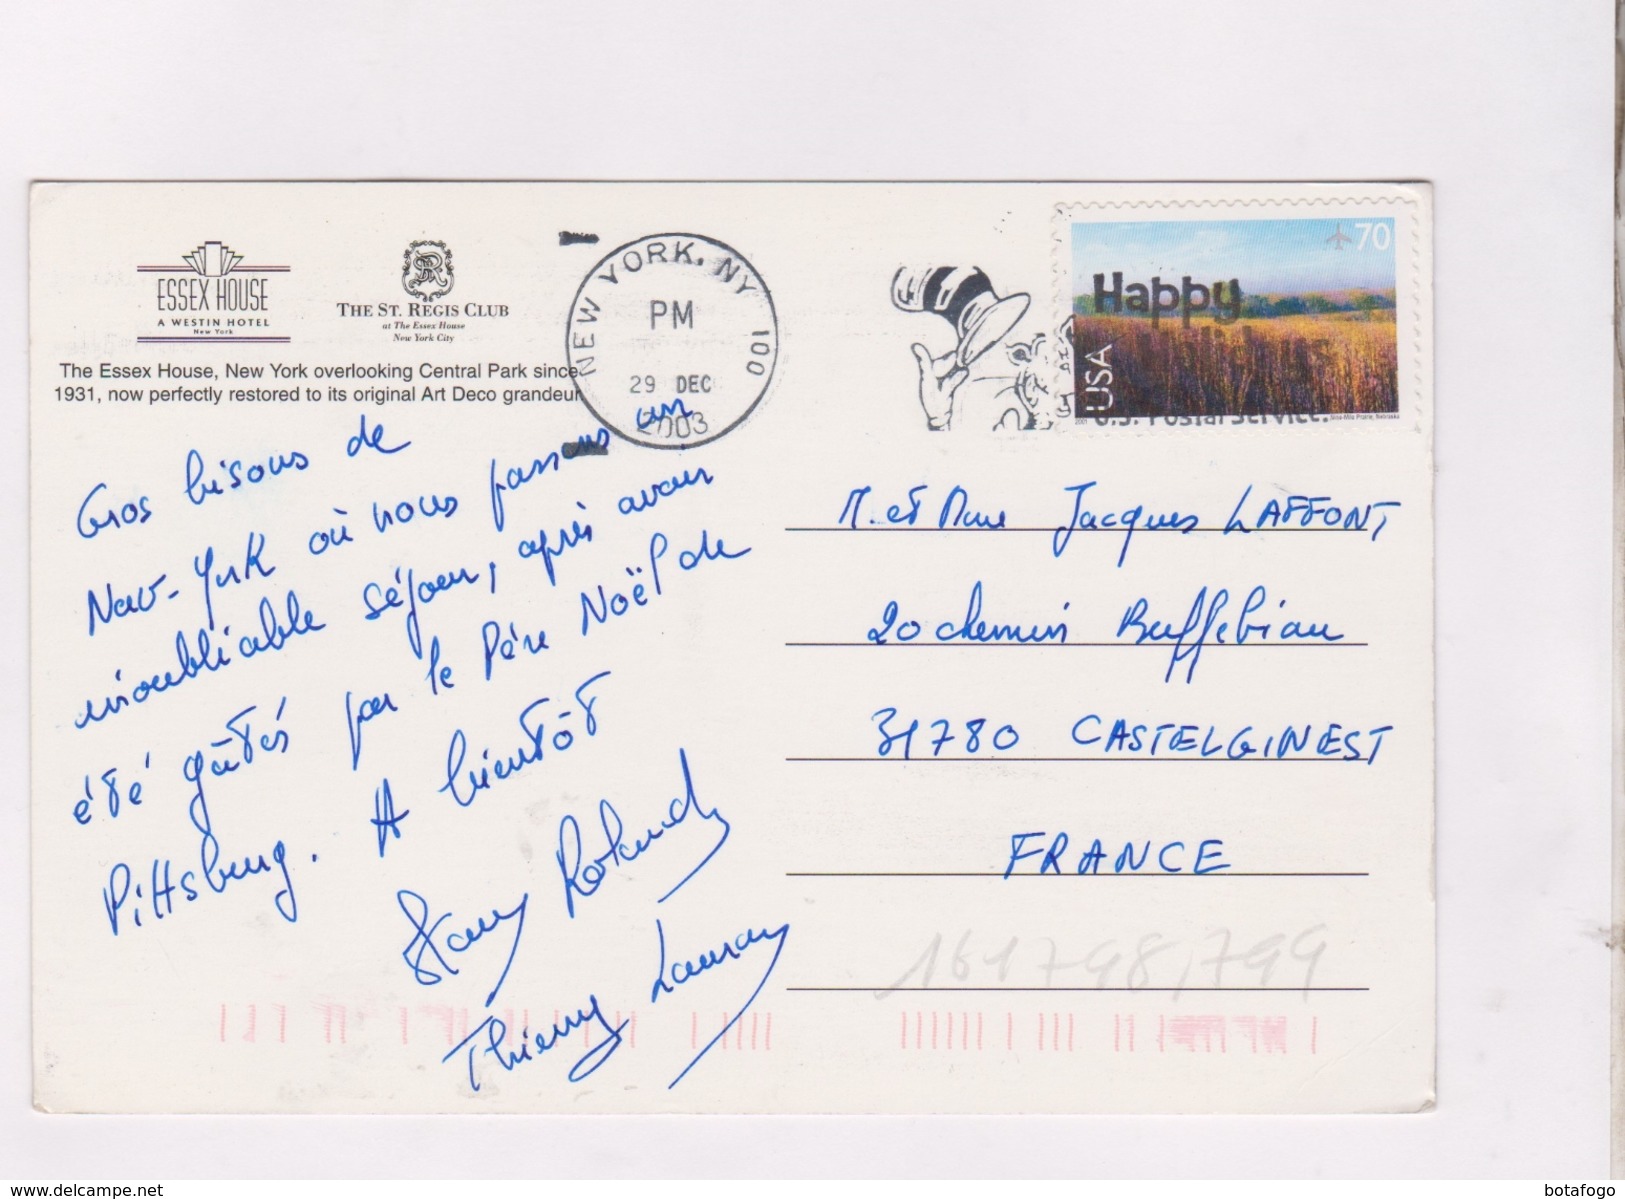 ESSEX HOUSE
A WESTIN HOTEL
New York
THE ST. REGIS CLUB
at The Essex House
New York City
The Essex House, New York overlooking Central Park since
1931, now perfectly restored to its original Art Deco grandeur
NEW YORK, NY 100
PM
29 DEC
2003
Happy
U.S. Postal Service.
70
USA
2001
Nine-Mile Prairie, Nebraska
Gros bisous de
New-York où nous passons un
inoubliable séjour, après avoir
été gâtés par le Père Noël de
Pittsburg. A bientôt
Stany Roland
Thierry
M. et Mme Jacques LAFFONT
20 chemin Buffebiau
31780 CASTELGINEST
FRANCE
161798,799
www.delcampe.net
botafogo